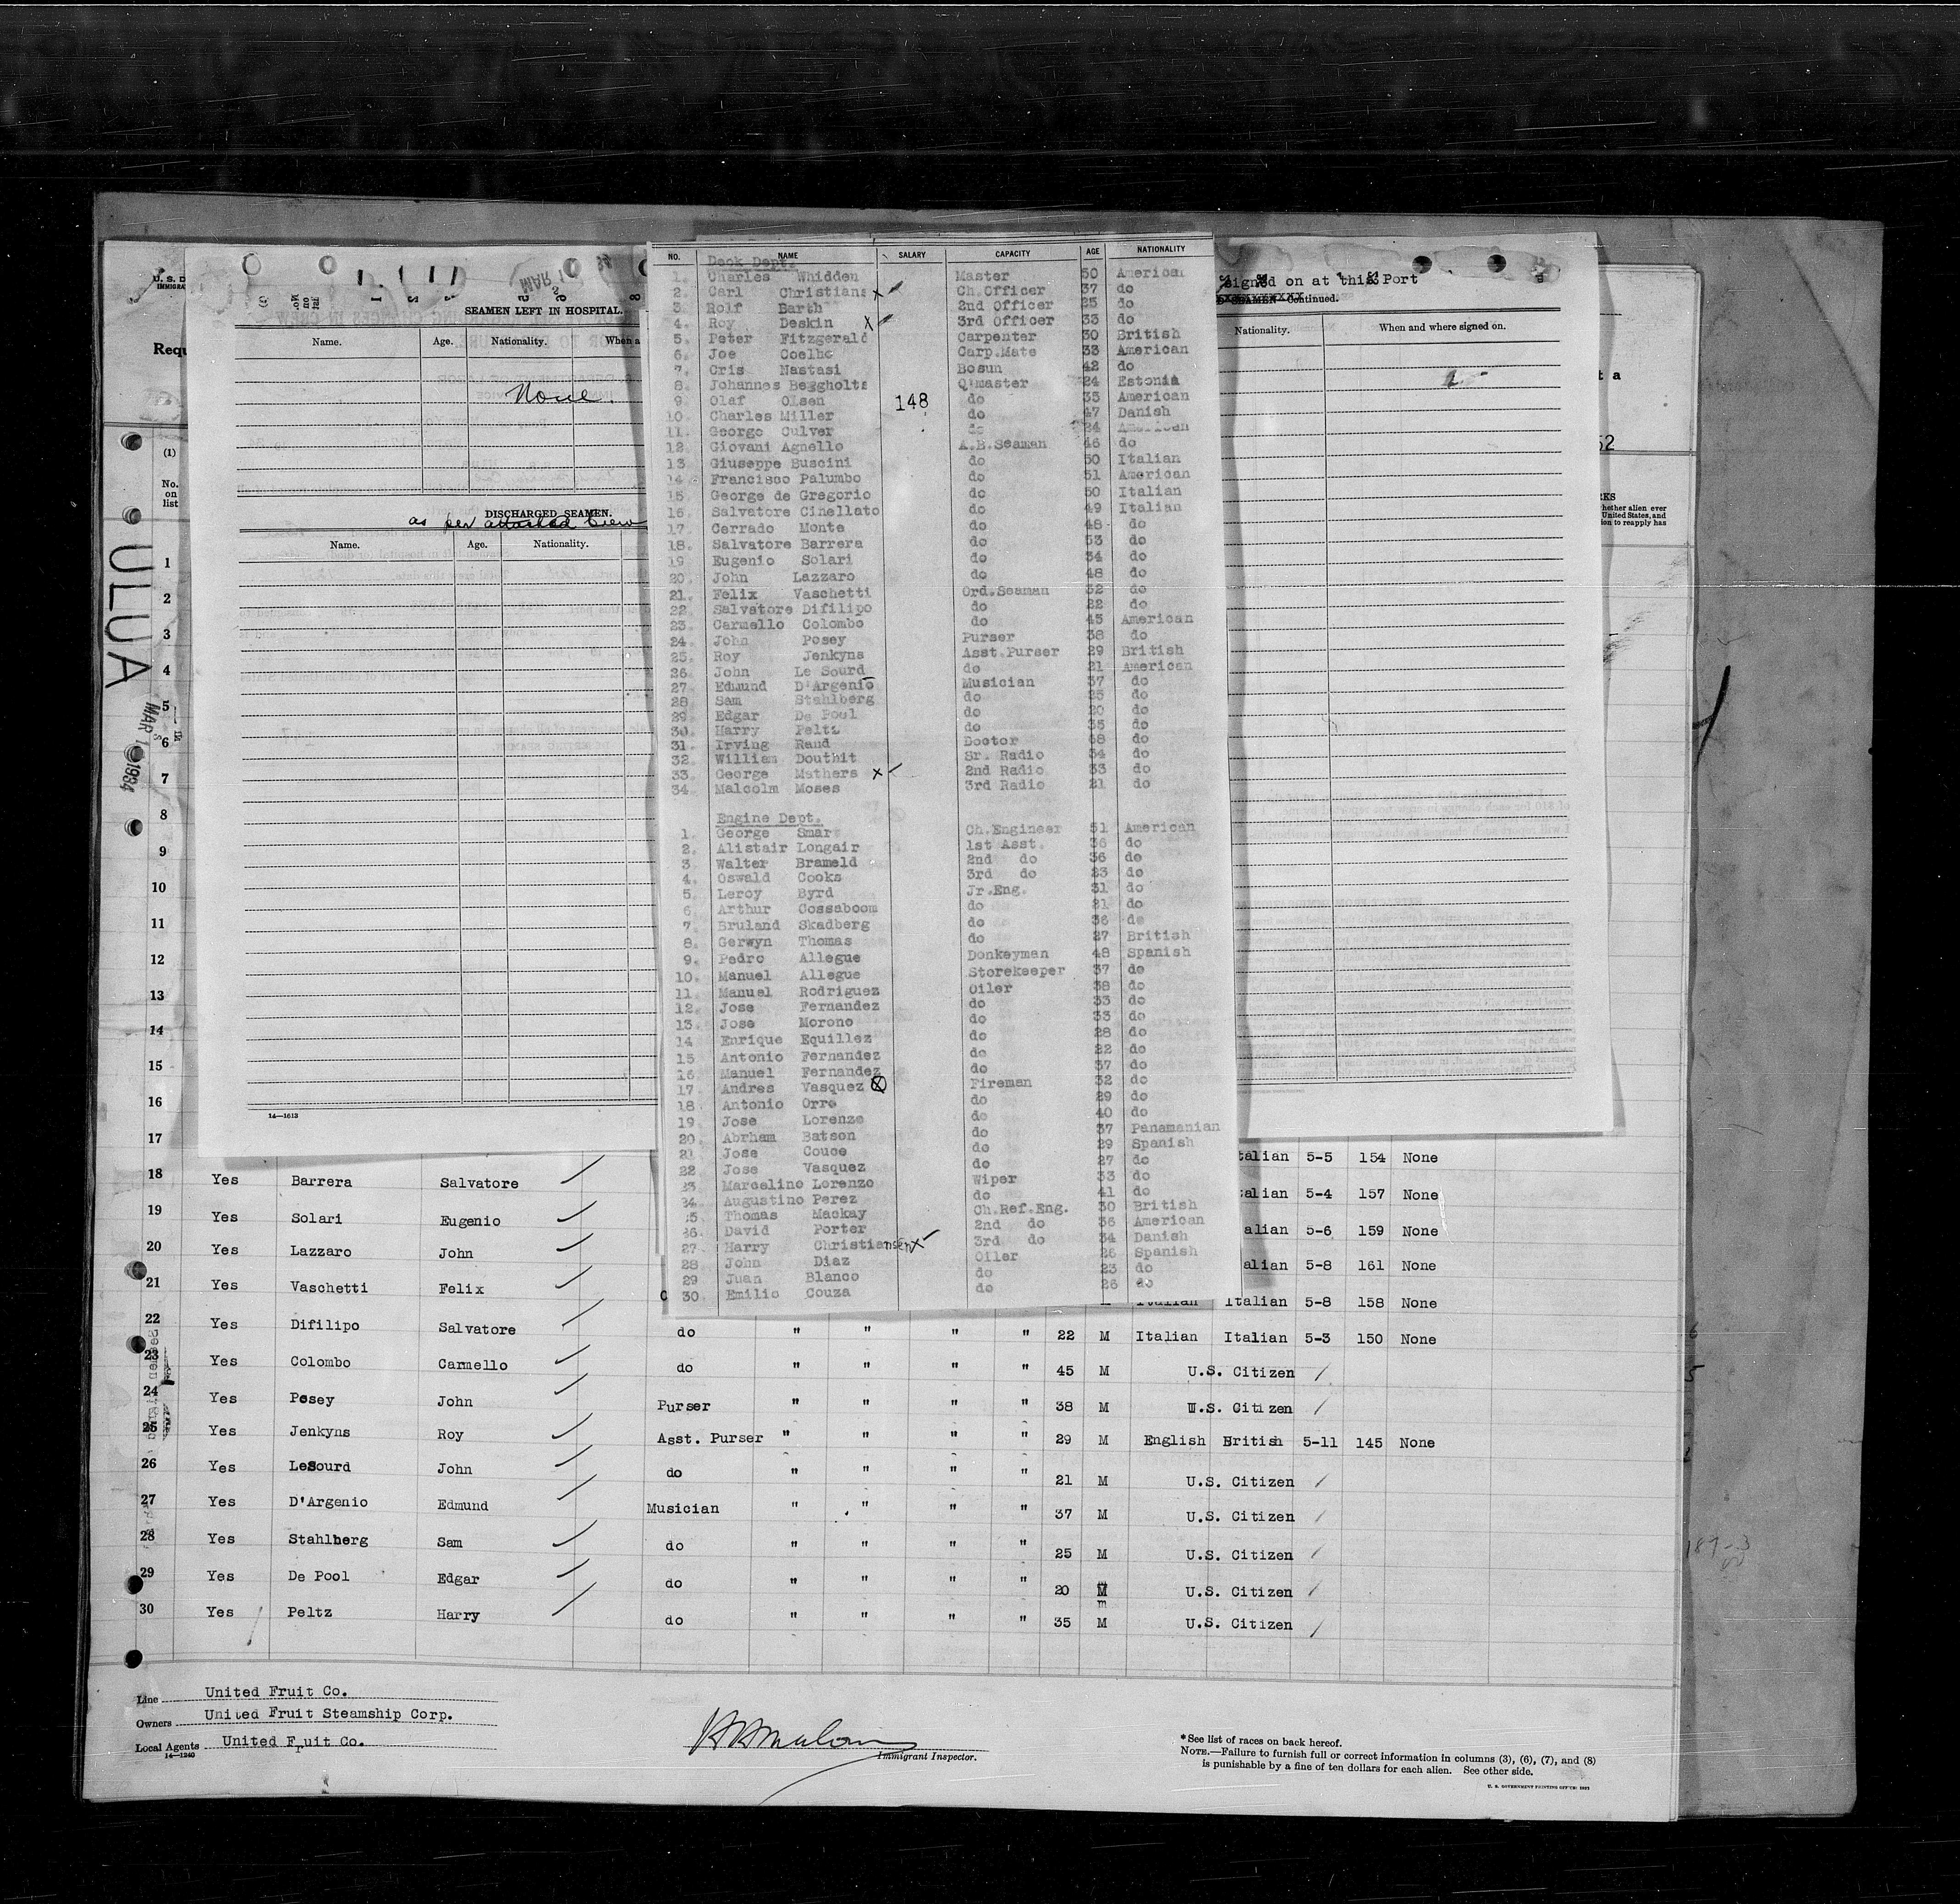 U. S. D
IMMIGRA
Requ
ULUA
MAR 1 1934
(1)
No.
on
list
SEAMEN LEFT IN HOSPITAL.
Name. Age. Nationality. When a
None.
DISCHARGED SEAMEN.
as per attached Crew
Name. Age. Nationality.
14—1613
signed on at this Port
SEAMEN—Continued.
Nationality. When and where signed on.
t a
52
RKS
hether alien ever
United States, and
ion to reapply has
NO. NAME SALARY CAPACITY AGE NATIONALITY
Deck Dept.
1. Charles Whidden Master 50 American
2. Carl Christians x Ch.Officer 37 do
3. Rolf Barth 2nd Officer 25 do
4. Roy Deskin X 3rd Officer 33 do
5. Peter Fitzgerald Carpenter 30 British
6. Joe Coelho Carp.Mate 33 American
7. Cris Nastasi Bosun 42 do
8. Johannes Beggholts Q'master 24 Estonia
9. Olaf Olsen 148 do 35 American
10. Charles Miller do 47 Danish
11. George Culver do 24 American
12. Giovani Agnello A.B.Seaman 46 do
13 Giuseppe Buscini do 50 Italian
14. Francisco Palumbo do 51 American
15. George de Gregorio do 50 Italian
16. Salvatore Cinellato do 49 Italian
17. Cerrado Monte do 48 do
18. Salvatore Barrera do 53 do
19 Eugenio Solari do 34 do
20. John Lazzaro do 48 do
21. Felix Vaschetti Ord.Seaman 32 do
22. Salvatore Difilipo do 22 do
23. Carmello Colombo do 45 American
24. John Posey Purser 38 do
25. Roy Jenkyns Asst.Purser 29 British
26. John Le Sourd do 21 American
27. Edmund D'Argenio Musician 37 do
28. Sam Stahlberg do 25 do
29. Edgar De Pool do 20 do
30. Harry Peltz do 35 do
31. Irving Rand Doctor 58 do
32. William Douthit Sr. Radio 34 do
33. George Mathers x 2nd Radio 33 do
34. Malcolm Moses 3rd Radio 21 do
Engine Dept.
1. George Smar Ch.Engineer 51 American
2. Alistair Longair 1st Asst. 36 do
3. Walter Brameld 2nd do 36 do
4. Oswald Cooks 3rd do 23 do
5. Leroy Byrd Jr.Eng. 31 do
6. Arthur Cossaboom do 21 do
7. Bruland Skadberg do 36 do
8. Gerwyn Thomas do 27 British
9. Pedro Allegue Donkeyman 48 Spanish
10. Manuel Allegue Storekeeper 37 do
11. Manuel Rodriguez Oiler 38 do
12. Jose Fernandez do 33 do
13. Jose Morono do 33 do
14 Enrique Equillez do 28 do
15 Antonio Fernandez do 22 do
16 Manuel Fernandez do 37 do
17. Andres Vasquez X Fireman 32 do
18. Antonio Orro do 29 do
19. Jose Lorenzo do 40 do
20. Abrham Batson do 37 Panamanian
21. Jose Couce do 29 Spanish
22 Jose Vasquez do 27 do
23. Marcelino Lorenzo Wiper 33 do
24. Augustino Perez do 41 do
25. Thomas Mackay Ch.Ref.Eng. 30 British
26. David Porter 2nd do 36 American
27. Harry Christiansen x 3rd do 34 Danish
28 John Diaz Oiler 26 Spanish
29 Juan Blanco do 23 do
30. Emilio Couza do 26 do
1
2
3
4
5
6
7
8
9
10
11
12
13
14
15
16
17
18 Yes Barrera Salvatore talian 5-5 154 None
19 Yes Solari Eugenio talian 5-4 157 None
20 Yes Lazzaro John alian 5-6 159 None
21 Yes Vaschetti Felix alian 5-8 161 None
Italian Italian 5-8 158 None
22 Yes Difilipo Salvatore do " " " " 22 M Italian Italian 5-3 150 None
23 Yes Colombo Carmello do " " " " 45 M U.S. Citizen
24 Yes Posey John Purser " " " " 38 M U.S. Citizen
25 Yes Jenkyns Roy Asst. Purser " " " " 29 M English British 5-11 145 None
26 Yes LeSourd John do " " " " 21 M U.S. Citizen
27 Yes D'Argenio Edmund Musician " " " " 37 M U.S. Citizen
28 Yes Stahlberg Sam do " " " " 25 M U.S. Citizen
29 Yes De Pool Edgar do " " " " 20 M U.S. Citizen
30 Yes Peltz Harry do " " " " 35 M U.S. Citizen
Line United Fruit Co.
Owners United Fruit Steamship Corp.
Local Agents United Fruit Co.
14—1240
Immigrant Inspector.
*See list of races on back hereof.
NOTE.—Failure to furnish full or correct information in columns (3), (6), (7), and (8)
is punishable by a fine of ten dollars for each alien. See other side.
U. S. GOVERNMENT PRINTING OFFICE: 1931